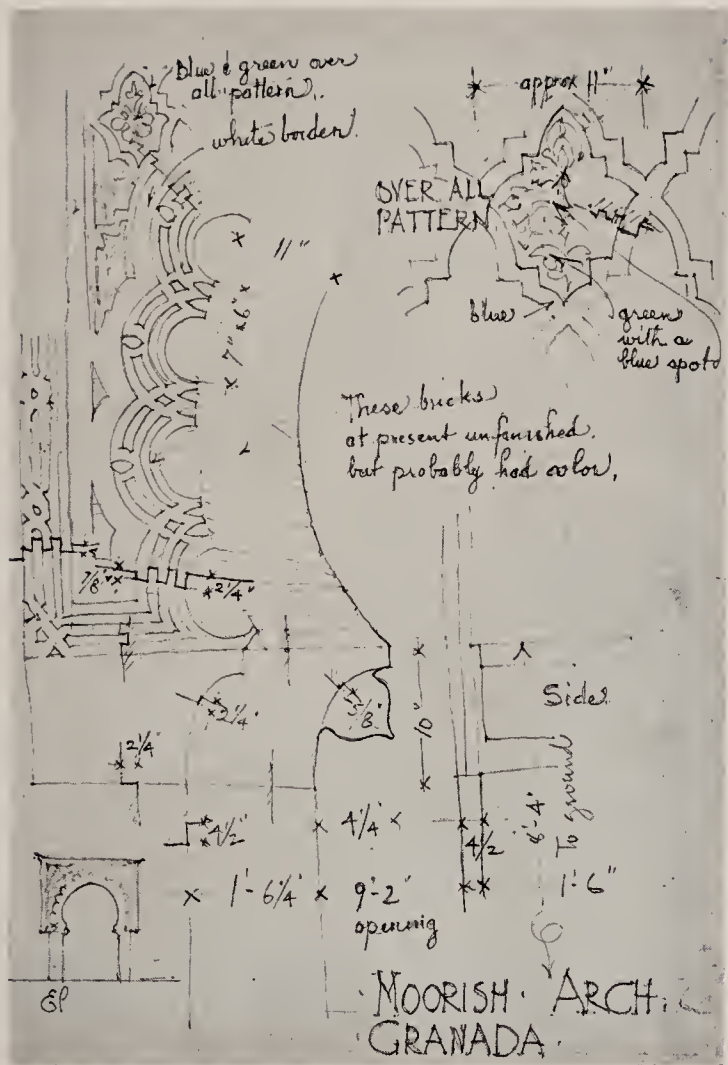 Blue & green over
all pattern.
white border.
approx 11"
OVER ALL
PATTERN
11"
7"
6"
blue
green
with a
blue spot
These bricks
at present unfinished.
but probably had color,
7/8"
2 1/4"
2 1/4"
5/8"
10"
Side
2 1/4"
4 1/2"
4 1/4"
4 1/2
8'-4"
To ground
1'-6 1/4"
9'-2"
opennig
1'-6"
MOORISH · ARCH.
GRANADA ·